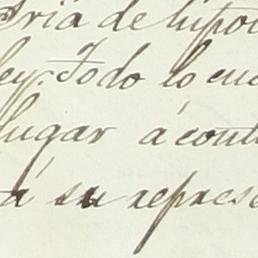 oria de hipot
ley. Todo lo cua
lugar á conti
a su represe